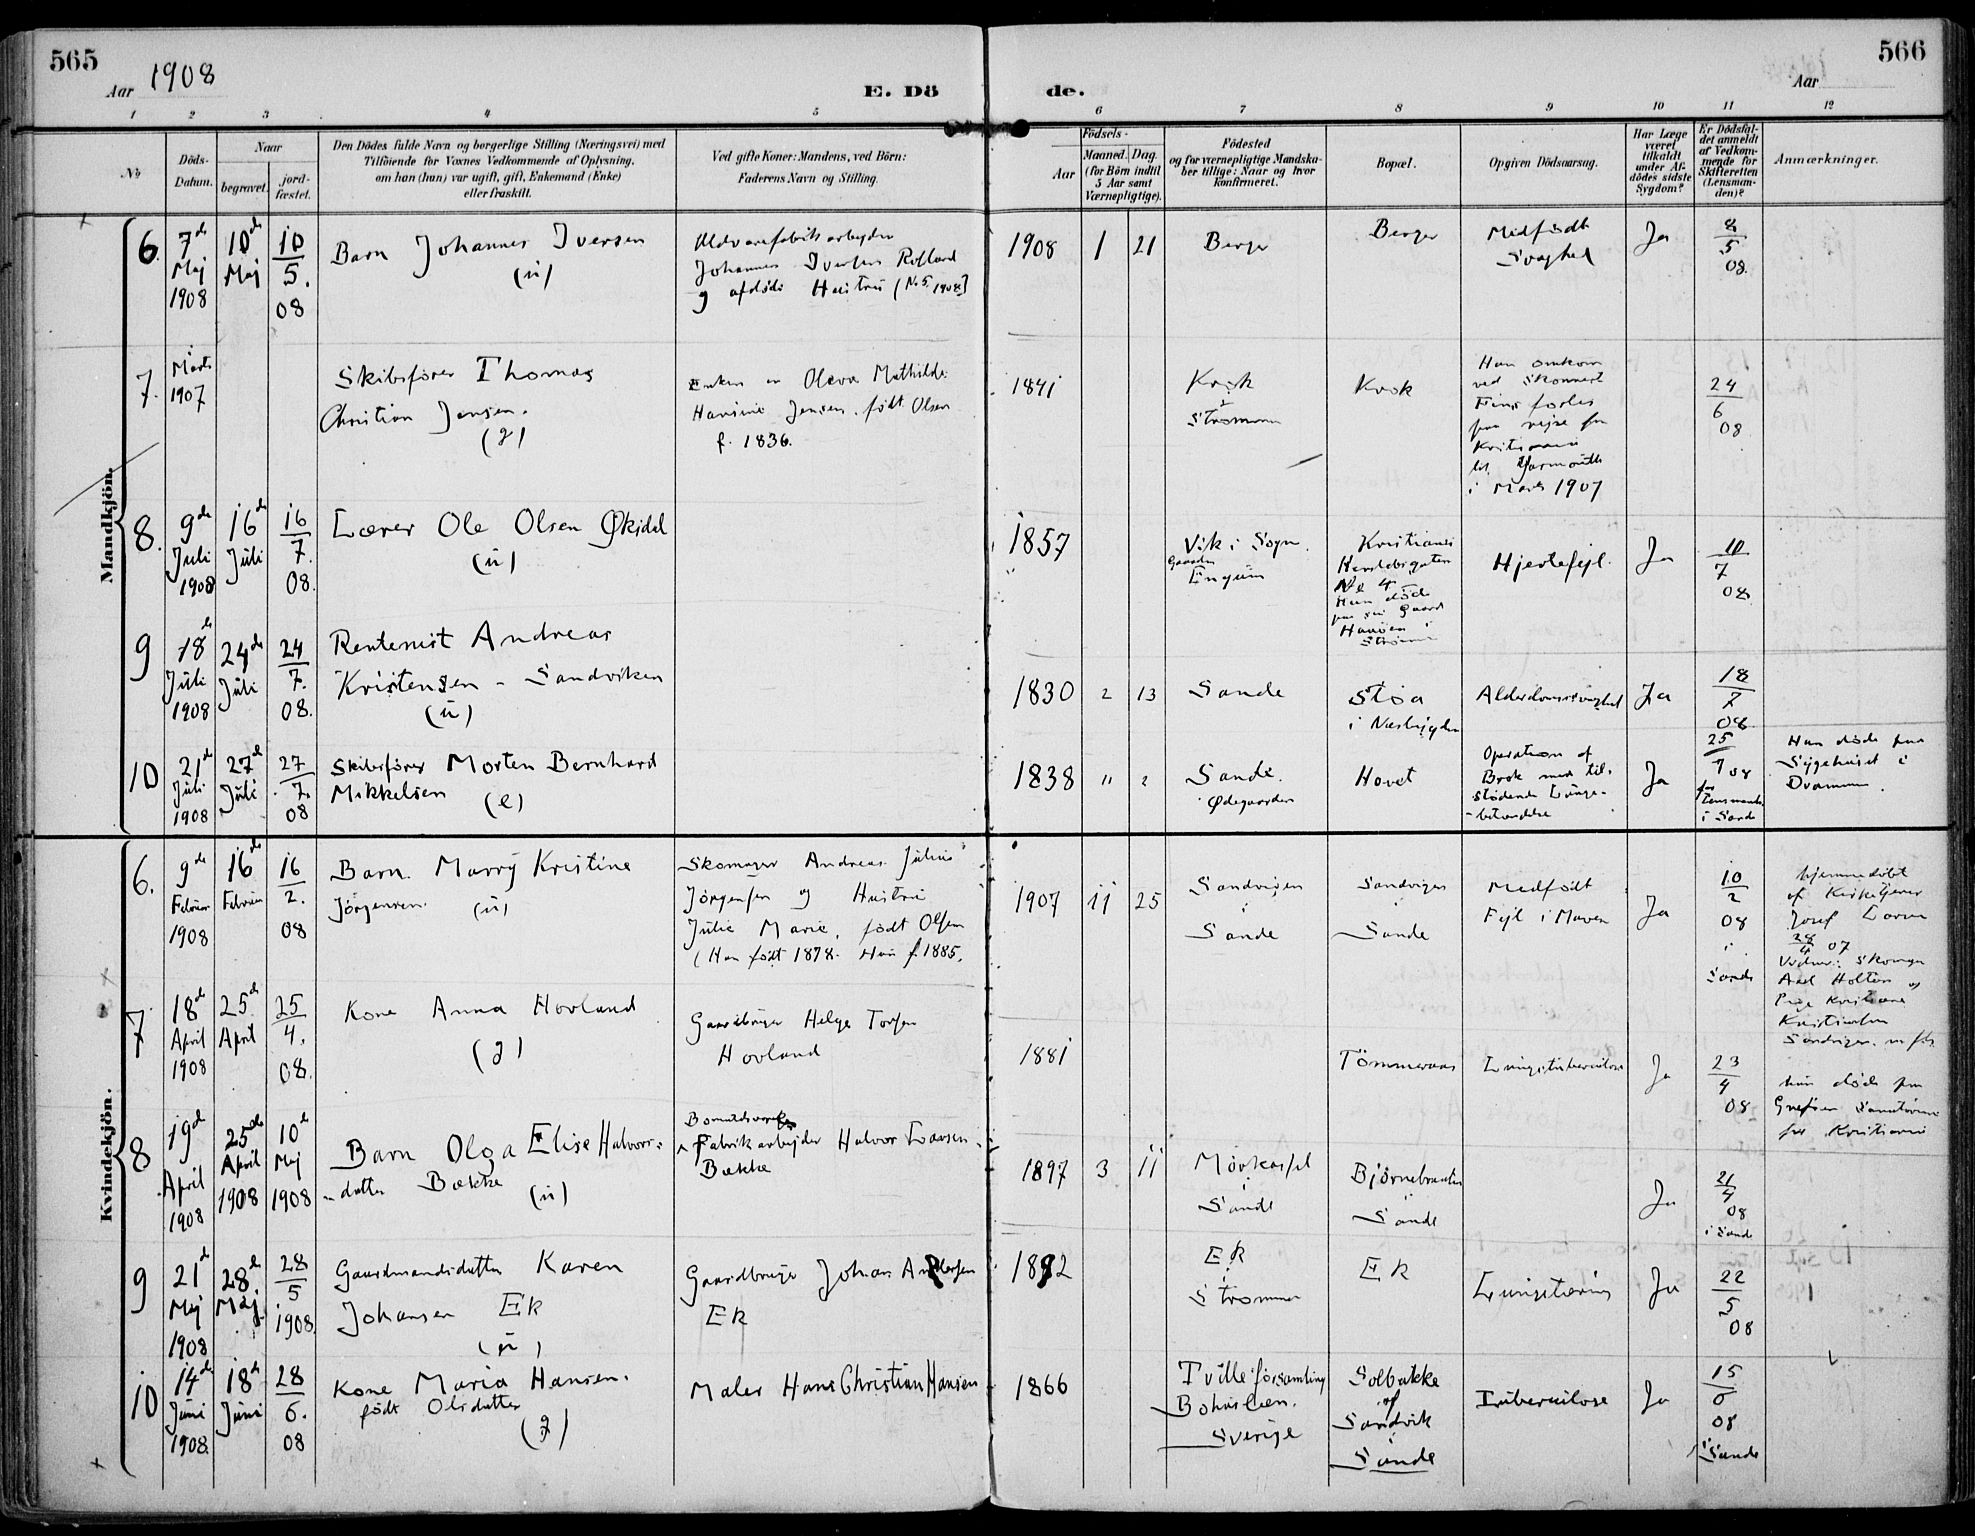 565
Aar 1908
E. Dö
de.
566
Aar
1 2 3 4 5 6 7 8 9 10 11 12
No
Döds-
Datum.
Naar
begravet.
jord-
fæstet.
Den Dödes fulde Navn og borgerlige Stilling (Næringsvei) med
Tilföiende for Voxnes Vedkommende af Oplysning,
om han (hun) var ugift, gift, Enkemand (Enke)
eller fraskilt.
Ved gifte Koner: Mandens, ved Börn:
Faderens Navn og Stilling.
Födsels-
Aar
Maaned. Dag.
(for Börn indtil
5 Aar samt
Værnepligtige).
Födested
og for værnepligtige Mandska-
ber tillige: Naar og hvor
konfirmeret.
Bopæl.
Opgiven Dödsaarsag.
Har Læge
været
tilkaldt
under Af-
dödes sidste
Sygdom?
Er Dödsfal-
det anmeldt
af Vedkom-
mende for
Skifteretten
(Lensman-
den)?
Anmærkninger.
Mandkjön.
6.
7de
Maj
1908
10de
Maj
10
5.
08
Barn Johannes Iversen
(u)
Uldvarefabrikarbejder
Johannes Iversen
og afdøde Hustru (No 5. 1908)
1908 1 21
Berger
Berger
Medfödt
Svaghed
Ja
8
5
08.
7.
Marts
1907
Skibsförer Thomas
Christian Jensen.
(g)
Enken er Oleva Mathilde
Hansine Jensen, født Olsen
f. 1836.
1841
Krok
i
Strømmen
Krok
Han omkom
ved Skonnert
forlis
paa rejse fra
Kristiania
til Yarmouth
i Marts 1907
24
6
08
8.
9de
Juli
1908
16de
Juli
16
7.
08.
Lærer Ole Olsen Økidal
(u)
1857
Vik i Sogn.
Gaarden
Kristiania
No 4
Han døde
paa sin Gaard
i
Hjertefejl.
Ja
10
7
08
9
18de
Juli
1908
24de
Juli
24
7.
08.
Rentenist Andreas
Kristensen - Sandviken
(u)
1830 2 13
Sande
Stöa
i Nesbygden
Alderdomssvaghed
Ja
18
7
08
10
21de
Juli
1908
27de
Juli
27
7.
08
Skibsförer Morten Bernhard
Mikkelsen (e)
1838 11 2
Sande.
Ødegaarden
Hovet
Operation af
Brok med til-
stødende Lunge-
-betændelse
Ja
25
7 08
for
Lensmanden
i Sande
Han døde paa
Sygehuset i
Drammen.
Kvindekjön.
6.
9de
Februar
1908
16de
Februar
16
2.
08
Barn Marry Kristine
Jörgensen (u)
Skomager Andreas Julius
Jörgensen og Hustru
Julie Marie, født Olsen
(Han født 1878. Hun f. 1885.
1907 11 25
Sandvigen
i
Sande
Sandvigen
i
Sande
Medfödt
Fejl i Maven
Ja
10
2
08
i
Sande
hjemmedöbt
af Kirketjener
Josef Larsen
28
4 07
Vidner: Skomager
Axel Holten og
Pige Kristiane
Kristiansen
7
18de
April
1908
25de
April
25
4.
08.
Kone Anna Hovland
(g)
Gaardbruger Helge Torsen
Hovland
1881
Tömmeraas
Lungetuberculose
Ja
23
4
08
hun døde paa
Grefsen Sanatorium
Kristiania
8
19de
April
1908
25de
April
1908
10de
Maj
1908
Barn Olga Elise Halvors-
-datter Bække
(u)
Bomuldsvare
Fabrikarbejder Halvor Larsen
Bække
1897 3 11
i
Sande
i
Sande
Ja
21
4
08
i Sande
9
21de
Maj
1908
28de
Maj
28
5
1908.
Gaardmandsdatter Karen
Johansen Ek
(u)
Gaardbruger Johan Andersen
Ek
1892
Ek
i
Strømmen
Ek
Lungetæring
Ja
22
5
08
10
14de
Juni
1908.
18de
Juni
28
6.
08
Kone Maria Hansen.
født Olsdatter
(g)
Maler Hans Christian Hansen
1866
Tville församling
Bohuslen.
Sverige
Solbakke
af
Sandvik
i
Sande
Tuberculose
Ja
15
6
08
i Sande